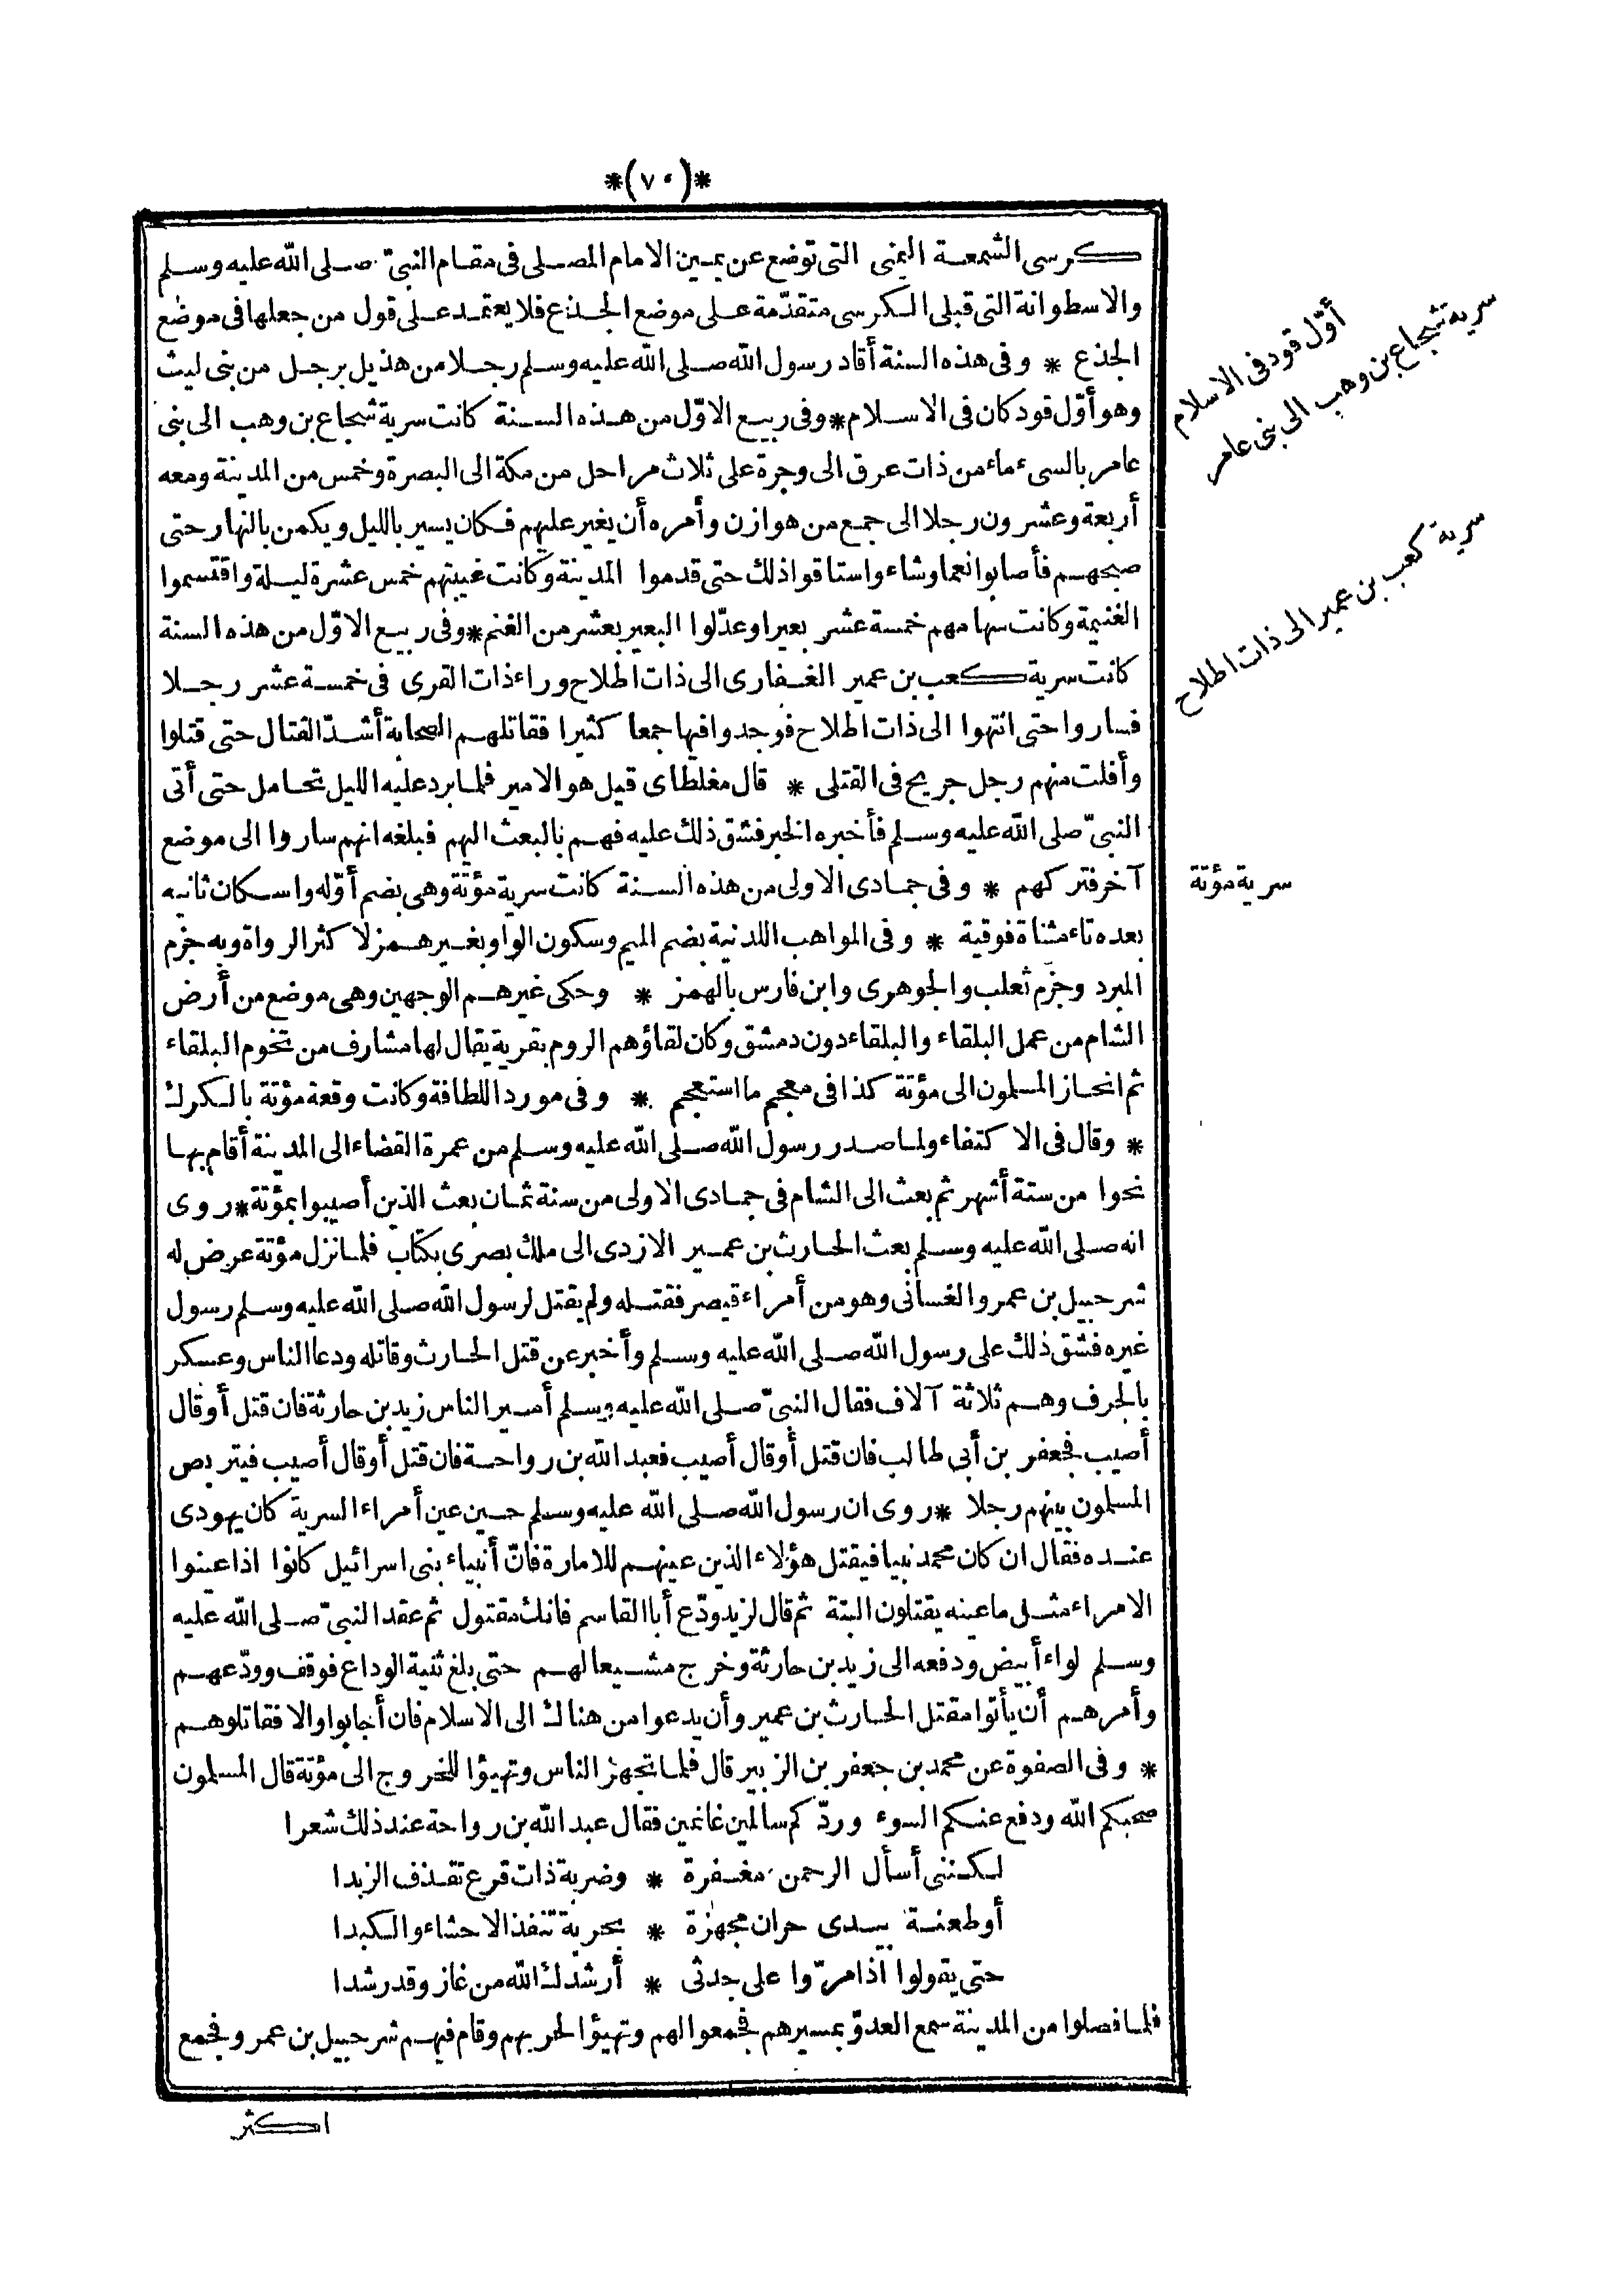 *(٧٠)*
كرسى الشمعة اليمنى التى توضع عن يمين الامام المصلى فى مقام النبىّ صلى الله عليه وسلم
والاسطوانة التى قبلى الكرسى متقدّمة على موضع الجذع فلا يعتمد على قول من جعلها فى موضع
الجذع * وفى هذه السنة أقاد رسول الله صلى الله عليه وسلم رجلا من هذيل برجل من بنى ليث
وهو أوّل قود كان فى الاسلام * وفى ربيع الاوّل من هذه السنة كانت سرية شجاع بن وهب الى بنى
عامر بالسىء ماء من ذات عرق الى وجرة على ثلاث مراحل من مكة الى البصرة وخمس من المدينة ومعه
أربعة وعشرون رجلا الى جمع من هوازن وأمره أن يغير عليهم فكان يسير بالليل ويكمن بالنهار حتى
صبحهم فأصابوا نعما وشاء واستاقوا ذلك حتى قدموا المدينة وكانت غيبتهم خمس عشرة ليلة واقتسموا
الغنيمة وكانت سهامهم خمسة عشر بعيرا وعدّلوا البعير بعشر من الغنم * وفى ربيع الاوّل من هذه السنة
كانت سرية كعب بن عمير الغفارى الى ذات اطلاح وراء ذات القرى فى خمسة عشر رجلا
فساروا حتى انتهوا الى ذات اطلاح فوجدوا فيها جمعا كثيرا فقاتلهم الصحابة أشدّ القتال حتى قتلوا
وأفلت منهم رجل جريح فى القتلى * قال مغلطاى قيل هو الامير فلما برد عليه الليل تحامل حتى أتى
النبىّ صلى الله عليه وسلم فأخبره الخبر فشق ذلك عليه فهم بالبعث اليهم فبلغه انهم ساروا الى موضع
آخر فتركهم * وفى جمادى الاولى من هذه السنة كانت سرية مؤتة وهى بضم أوّله واسكان ثانيه
بعده تاء مثناة فوقية * وفى المواهب اللدنية بضم الميم وسكون الواو بغير همز لا كثر الرواة وبه جزم
المبرد وجزم ثعلب والجوهرى وابن فارس بالهمز * وحكى غيرهم الوجهين وهى موضع من أرض
الشام من عمل البلقاء والبلقاء دون دمشق وكان لقاؤهم الروم بقرية يقال لها مشارف من تخوم البلقاء
ثم انحاز المسلمون الى مؤتة كذا فى معجم ما استعجم * وفى مورد اللطافة وكانت وقعة مؤتة بالكرك
* وقال فى الاكتفاء ولما صدر رسول الله صلى الله عليه وسلم من عمرة القضاء الى المدينة أقام بها
نحوا من ستة أشهر ثم بعث الى الشام فى جمادى الاولى من سنة ثمان بعث الذين أصيبوا بمؤتة * روى
انه صلى الله عليه وسلم بعث الحارث بن عمير الازدى الى ملك بصرى بكتاب فلما نزل مؤتة عرض له
شرحبيل بن عمرو الغسانى وهو من أمراء قيصر فقتله ولم يقتل لرسول الله صلى الله عليه وسلم رسول
غيره فشق ذلك على رسول الله صلى الله عليه وسلم وأخبر عن قتل الحارث وقاتله ودعا الناس وعسكر
بالجرف وهم ثلاثة آلاف فقال النبىّ صلى الله عليه وسلم أمير الناس زيد بن حارثة فان قتل أو قال
أصيب فجعفر بن أبى طالب فان قتل أو قال أصيب فعبد الله بن رواحة فان قتل أو قال أصيب فيتربص
المسلمون بينهم رجلا * روى ان رسول الله صلى الله عليه وسلم حين عين أمراء السرية كان يهودى
عنده فقال ان كان محمد نبيا فيقتل هؤلاء الذين عينهم للامارة فانّ أنبياء بنى اسرائيل كانوا اذا عينوا
الامراء مثل ما عينه يقتلون البتة ثم قال لزيد ودّع أبا القاسم فانك مقتول ثم عقد النبىّ صلى الله عليه
وسلم لواء أبيض ودفعه الى زيد بن حارثة وخرج مشيعا لهم حتى بلغ ثنية الوداع فوقف وودّعهم
وأمرهم أن يأتوا مقتل الحارث بن عمير وأن يدعوا من هناك الى الاسلام فان أجابوا والا فقاتلوهم
* وفى الصفوة عن محمد بن جعفر بن الزبير قال فلما تجهز الناس وتهيؤا للخروج الى مؤتة قال المسلمون
صحبكم الله ودفع عنكم السوء وردّكم سالمين غانمين فقال عبد الله بن رواحة عند ذلك شعرا
لكننى أسأل الرحمن مغفرة * وضربة ذات قرع تقذف الزبدا
أو طعنة بيدى حران مجهزة * بحربة تنفذ الاحشاء والكبدا
حتى يقولوا اذا مرّوا على جدثى * أرشدك الله من غاز وقد رشدا
فلما فصلوا من المدينة سمع العدوّ بمسيرهم فجمعوا لهم وتهيؤا لحربهم وقام فيهم شرحبيل بن عمرو فجمع
اكثر
أوّل قود فى الاسلام
سرية شجاع بن وهب الى بنى عامر
سرية كعب بن عمير الى ذات اطلاح
سرية مؤتة